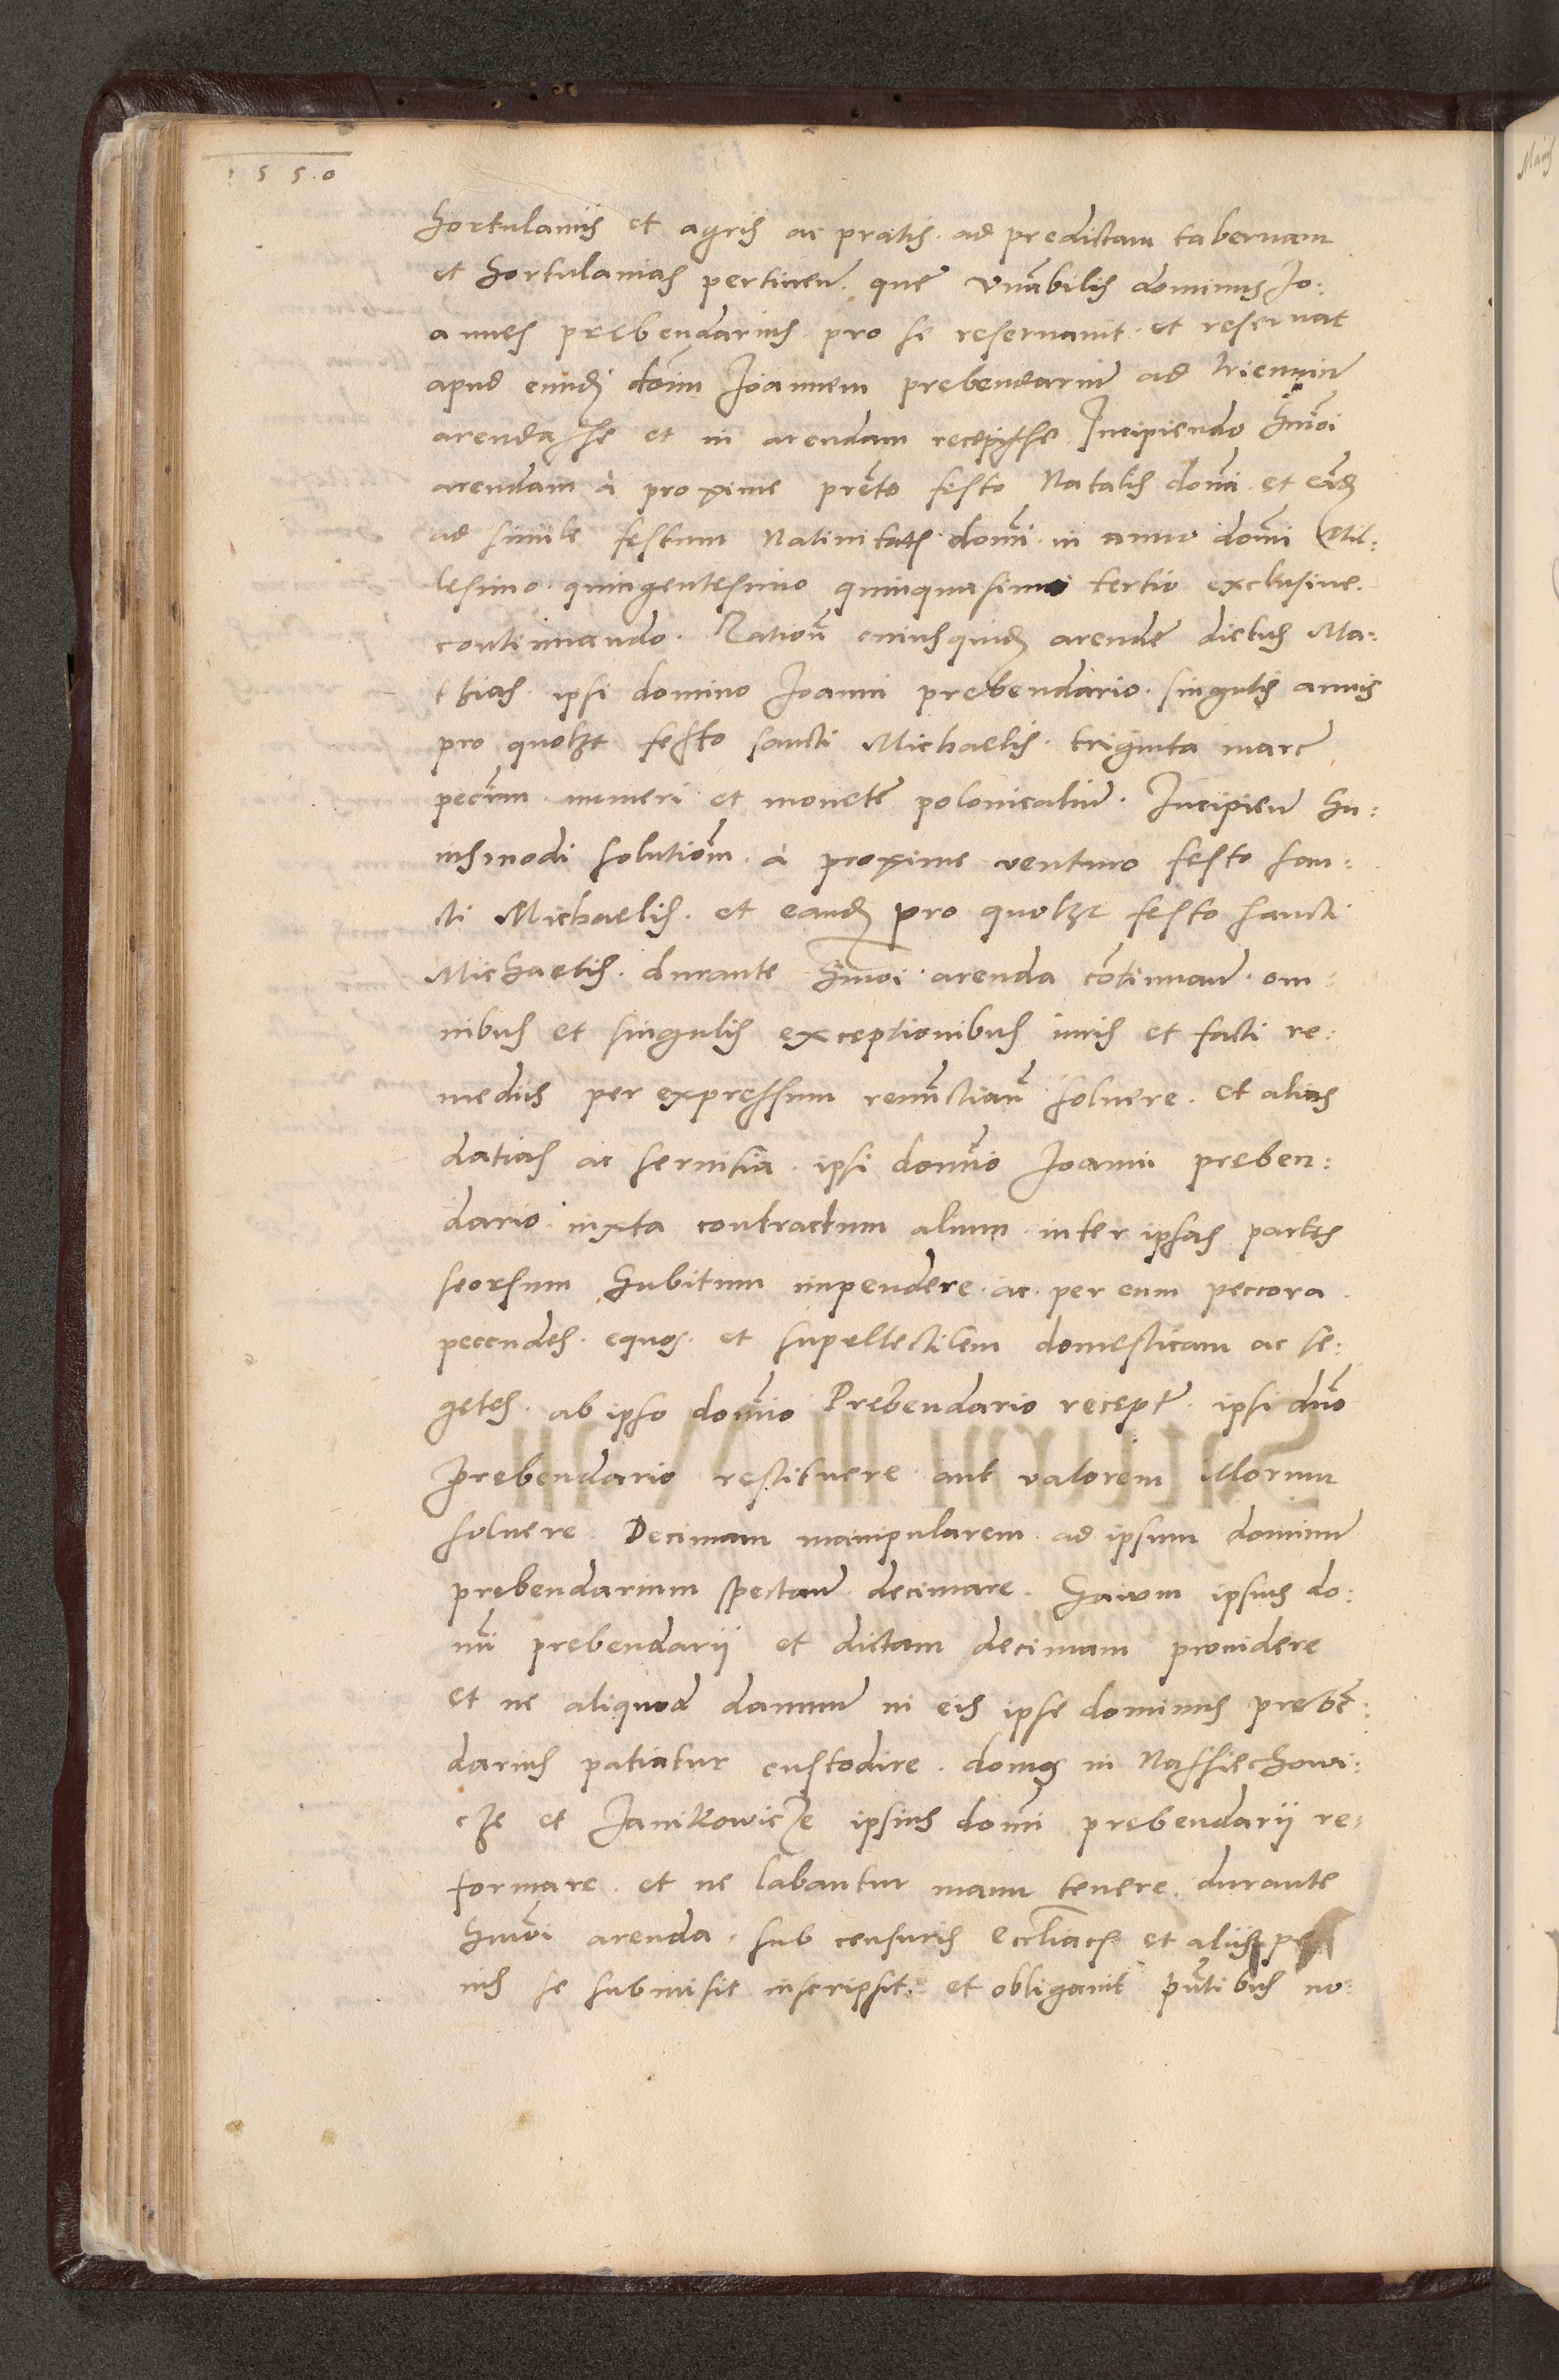 1550
hortulaniis et agris ac pratis. ad predictam tabernam
et hortulanias pertinen̄. que vnābilis dominus Jo:
annes prebendarius. pro se reseruauit. et reseruat
apud eund. dōīm Joannem prebendariū ad trienniū
arendasse et in arendam recepisse. Incipiendo hmōi
arendam à proxime pretō festo Natalis domī. et eād.
ad simile festum Natiuitatis domī. in anno domī Mil:
lesimo. quingentesimo quinquasimo tertio exclusiue.
continuando. Rationē cuiusquid. arende dictus Ma:
thias. ipsi domino Joanni prebendario. singulis annis
pro quolzt festo sancti Michaelis. triginta marc̄
pecūn. numeri et monete polonicaliū. Incipien̄ hu:
iusmodi solutiōm. à proxime venturo festo san:
cti Michaelis. et eand. pro quolzt festo sancti
Michaelis. durante hmōi arenda cōtinuan̄. om:
nibus et singulis exceptionibus iuris et facti re:
mediis per expressum renūctian̄ soluere. et alias
datias ac seruitia. ipsi domīo Joanni preben:
dario. iuxta contractum alium. inter ipsas partes
seorsum habitum impendere. ac. per eum peccora.
pecudes. equos. et supellectilem domesticam ac se:
getes. ab ipso domīo Prebendario recept̄. ipsi dn̄o
prebendario restituere aut valorem illorum
soluere. Decimam manipularem. ad ipsum dominū
prebendarium spectan̄. decimare. Gaium ipsius do:
mī prebendarii et dictam decimam prouidere
et ne aliquod damnū in eis ipse dominus prebē:
darius patiatur custodire. domos in Nassiechowi:
cze et Janikowicze ipsius domī prebendarii re:
formare. et ne labantur manu tenere. durante
hmōi arenda. sub censuris eccliacis et aliis pe
nis se submisit inscripsit. et obligauit pn̄tibus no: